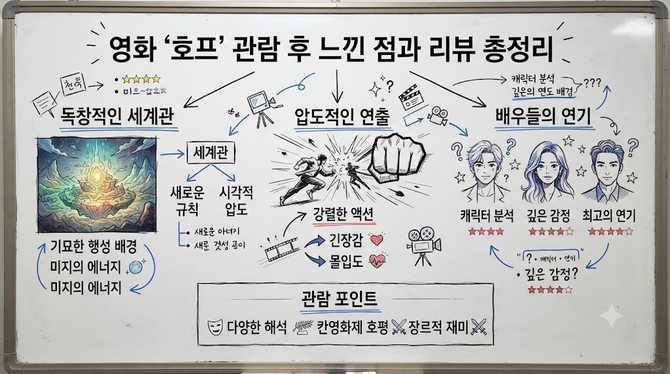 영화 '호프' 관람 후 느낀 점과 리뷰 총정리
캐릭터 분석
깊은의 연도 배경
???
독창적인 세계관
압도적인 연출
?
배우들의 연기
세계관
새로운 규칙
시각적 압도
• 새로운
기묘한 행성 배경
미지의 에너지
미지의 에너지
강렬한 액션
긴장감
몰입도
? ? ? ?
캐릭터 분석
깊은 감정
최고의 연기
"? • 캐릭터 • 연기"
• 깊은 감정?
관람 포인트
다양한 해석
칸영화제 호평
장르적 재미